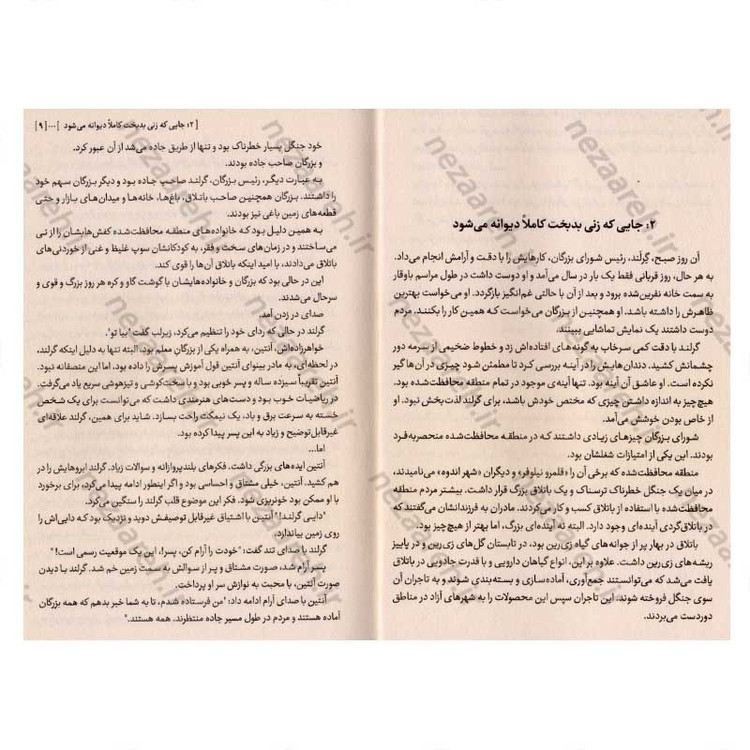 ۲: جایی که زنی بدبخت کاملاً دیوانه می‌شود
آن روز صبح، گِرلَند، رئیس شورای بزرگان، کارهایش را با دقت و آرامش انجام می‌داد.
به هر حال، روز قربانی فقط یک بار در سال می‌آمد و او دوست داشت در طول مراسم باوقار
به سمت خانه نفرین‌شده برود و بعد از آن با حالتی غم‌انگیز بازگردد. او می‌خواست بهترین
ظاهرش را داشته باشد. او همچنین از بزرگان می‌خواست که همین کار را بکنند. مردم
دوست داشتند یک نمایش تماشایی ببینند.
گرلند با دقت کمی سرخاب به گونه‌های افتاده‌اش زد و خطوط ضخیمی از سرمه دور
چشمانش کشید. دندان‌هایش را در آینه بررسی کرد تا مطمئن شود چیزی در آن‌ها گیر
نکرده است. او عاشق آن آینه بود. تنها آینه‌ی موجود در تمام منطقه محافظت‌شده بود.
هیچ‌چیز به اندازه داشتن چیزی که مختص خودش باشد، برای گرلند لذت‌بخش نبود. او
از خاص بودن خوشش می‌آمد.
شورای بزرگان چیزهای زیادی داشتند که در منطقه محافظت‌شده منحصربه‌فرد
بودند. این یکی از امتیازات شغلشان بود.
منطقه محافظت‌شده که برخی آن را «قلمرو نیلوفر» و دیگران «شهر اندوه» می‌نامیدند،
در میان یک جنگل خطرناک ترسناک و یک باتلاق بزرگ قرار داشت. بیشتر مردم منطقه
محافظت‌شده با استفاده از باتلاق کسب و کار می‌کردند. مادران به فرزندانشان می‌گفتند که
در باتلاق‌گردی آینده‌ای وجود دارد. البته نه آینده‌ای بزرگ، اما بهتر از هیچ‌چیز بود.
باتلاق در بهار پر از جوانه‌های گیاه زی‌رین بود، در تابستان گل‌های زی‌رین و در پاییز
ریشه‌های زی‌رین داشت. علاوه بر این، انواع گیاهان دارویی و با قدرت جادویی در باتلاق
یافت می‌شد که می‌توانستند جمع‌آوری، آماده‌سازی و بسته‌بندی شوند و به تاجران آن
سوی جنگل فروخته شوند. این تاجران سپس این محصولات را به شهرهای آزاد در مناطق
دوردست می‌بردند.
[ ۲: جایی که زنی بدبخت کاملاً دیوانه می‌شود ]...[ ۹ ]
خود جنگل بسیار خطرناک بود و تنها از طریق جاده می‌شد از آن عبور کرد.
و بزرگان صاحب جاده بودند.
به عبارت دیگر، رئیس بزرگان، گرلند صاحب جاده بود و دیگر بزرگان سهم خود
را داشتند. بزرگان همچنین صاحب باتلاق، باغ‌ها، خانه‌ها و میدان‌های بازار و حتی
قطعه‌های زمین باغی نیز بودند.
به همین دلیل بود که خانواده‌های منطقه محافظت‌شده کفش‌هایشان را از نی
می‌ساختند و در زمان‌های سخت و فقر، به کودکانشان سوپ غلیظ و غنی از خوردنی‌های
باتلاق می‌دادند، با امید اینکه باتلاق آن‌ها را قوی کند.
این در حالی بود که بزرگان و خانواده‌هایشان با گوشت گاو و کره هر روز بزرگ و قوی و
سرحال می‌شدند.
صدای در زدن آمد.
گرلند در حالی که ردای خود را تنظیم می‌کرد، زیرلب گفت "بیا تو".
خواهرزاده‌اش، آنتین، به همراه یکی از بزرگان معلم بود. البته تنها به دلیل اینکه گرلند
در لحظه‌ای، به مادر بینوای آنتین قول آموزش پسرش را داده بود. اما این منصفانه نبود.
آنتین تقریباً سیزده ساله و پسر خوبی بود و با سخت‌کوشی و تیزهوشی سریع یاد می‌گرفت.
در ریاضیات خوب بود و دست‌های هنرمندی داشت که می‌توانست برای یک شخص
خسته به سرعت برق و باد، یک نیمکت راحت بسازد. شاید برای همین، گرلند علاقه‌ای
غیرقابل‌توضیح و زیاد به این پسر پیدا کرده بود.
اما...
آنتین ایده‌های بزرگی داشت. فکرهای بلندپروازانه و سوالات زیاد. گرلند ابروهایش را در
هم کشید. آنتین، خیلی مشتاق و احساسی بود و اگر اینطور ادامه پیدا می‌کرد، برای برخورد
با او ممکن بود خونریزی شود. فکر این موضوع قلب گرلند را سنگین می‌کرد.
"دایی گرلند!" آنتین با اشتیاق غیرقابل توصیفش دوید و نزدیک بود که دایی‌اش را
روی زمین بیاندازد.
گرلند با صدای تند گفت: "خودت را آرام کن، پسر!، این یک موقعیت رسمی است!"
پسر آرام شد، صورت مشتاق و پر از سوالش به سمت زمین خم شد. گرلند با دیدن
صورت آنتین، با محبت به نوازش سر او پرداخت.
آنتین با صدای آرام ادامه داد: "من فرستاده شدم، تا به شما خبر بدهم که همه بزرگان
آماده هستند و مردم در طول مسیر جاده منتظرند. همه هستند."
nezaareh.ir